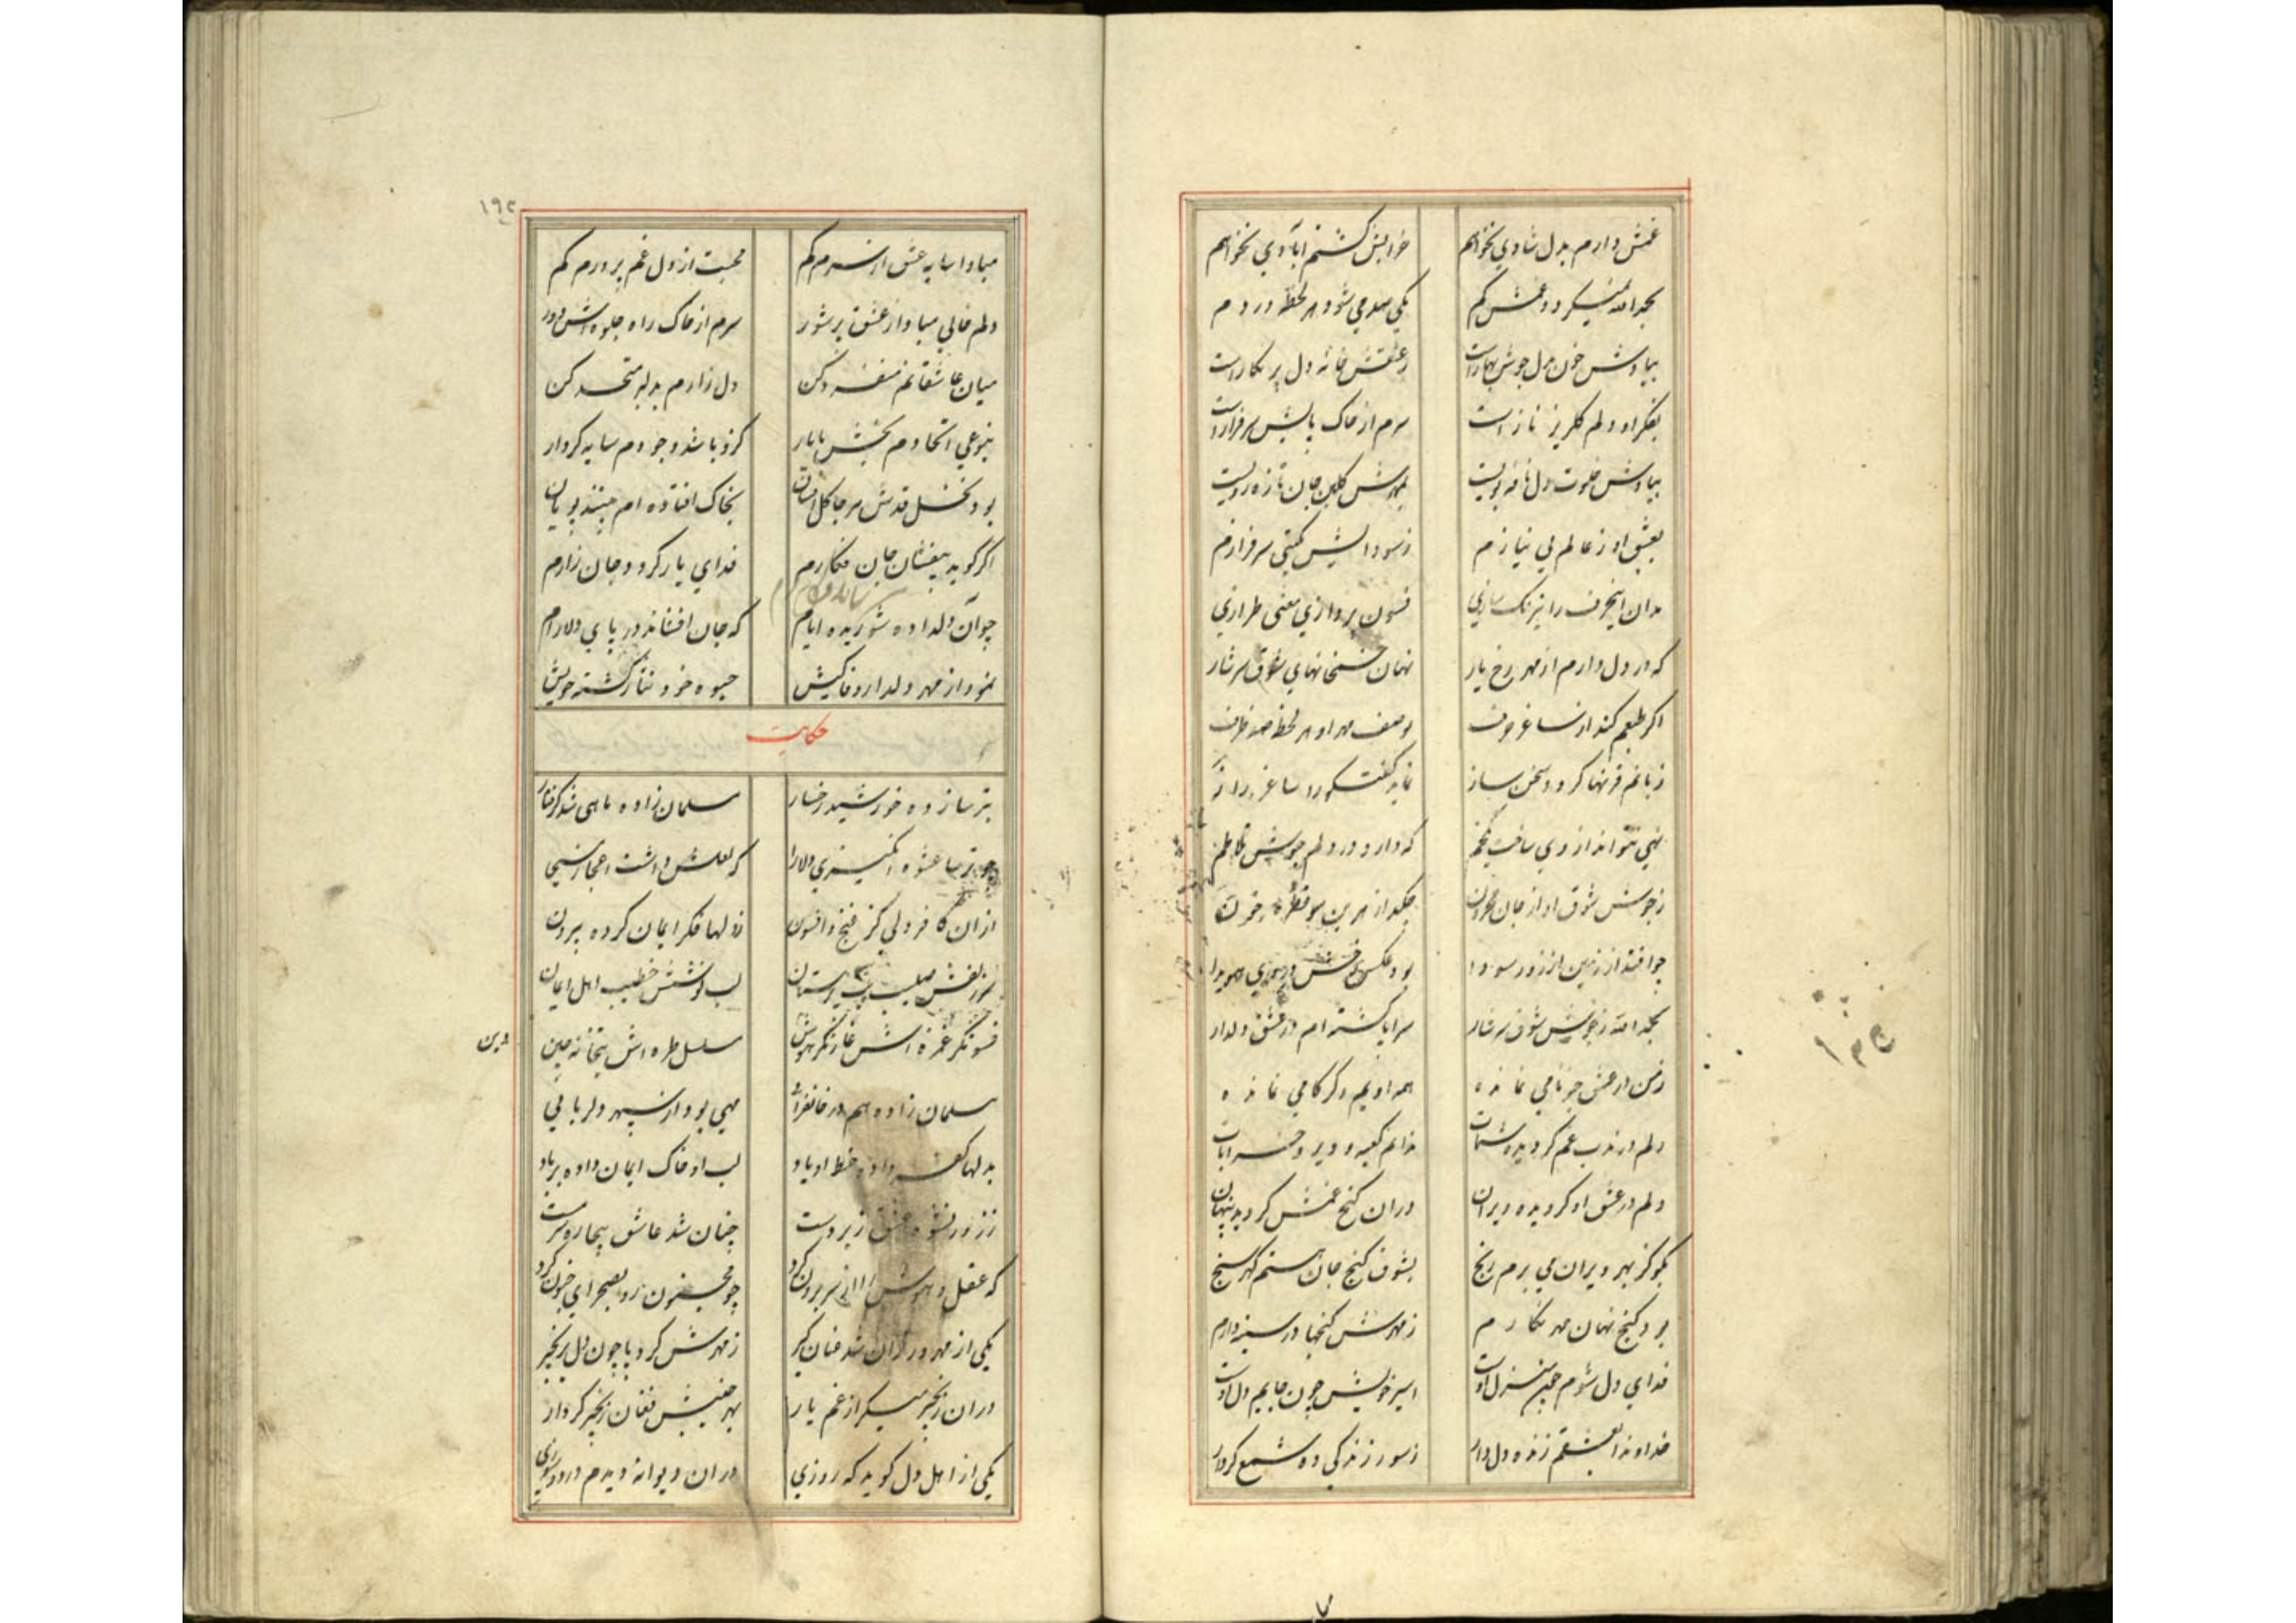 غمش دارم بدل شادی نخواهم خرابش گشتم آبادی نخواهم
بحمد الله نمیگردد غمش کم یکی صد می شود هر لحظه دردم
بیادش خون دل جوش بهارست ز عشقش خانه دل پر نگارست
بفکر او دلم گلریز نازست سرم از خاک پایش سرفرازست
بیادش خلوت دل نافه بویست بمهرش گلبن جان تازه رویست
بعشق او ز عالم بی نیازم ز سودایش بگیتی سرفرازم
مدان اینحرف را نیرنگ سازی فسون پردازی معنی طرازی
که در دل دارم از مهر رخ یار نهان خمخانهای شوق سرشار
اگر طبعم کند از ساغر حرف بوصف مهر او هر لحظه صد ظرف
زبانم قرنها گردد سخن ساز
تهی نتواند از وی ساخت که دارد در دلم جوش تلاطم
ز جوش شوق او از جان محزون چکد از هر بن مو قطره خون
چو افتد از زمین از زور سودا بود عکس رخش در وی هویدا
بحمد الله ز جوش شوق سرشار سراپا گشته ام در عشق دلدار
ز من در عشق جز نامی نمانده همه اویم دگر کامی نمانده
دلم در مذهب غم گردیده شهمات ندانم کعبه و دیر و خرابات
دلم در عشق او گردیده ویران در آن گنج غمش گردیده پنهان
مگو کز بهر ویران می برم رنج بشوق گنج جان هستم گهر سنج
بود گنج نهان مهر نگارم ز مهرش گنجها در سینه دارم
فدای دل شوم چون منزل اوست اسیر خویش چون جایم دل اوست
خداوندا بعشقم زنده دل دار ز سوزم زندگی ده شمع کردار
۱۹۲
مبادا سایه عشق از سرم کم محبت از دل غم پرورم کم
دلم خالی مبادا از عشق پر شور سرم از خاک راه جلوه اش دور
میان عاشقانم منفرد کن دل زارم بدلبر متحد کن
بنوعی اتحادم بخش با یار کزو باشد وجودم سایه کردار
بود نخل قدش هر جا گل افشان بخاک افتاده ام بیند پویان
اگر گوید بیفشان جان فگارم فدای یار گردد جان زارم
چو آن دلداده شوریده ایام که جان افشاند در پای دلارام
نمود از مهر دلدار وفا کیش خود نثار کشته خویش
حکایت
بترسا زاده خورشید رخسار مسلمان زاده ماهی شد گرفتار
چه ترسا عشوه انگیزی دلارا که لعلش داشت اعجاز مسیحا
از آن کافر دلی کز غنج و افسون ز دلها فکر ایمان کرده بیرون
سر زلفش صلیب بت پرستان لب نوشش خطیب اهل ایمان
فسونگر غمزه اش غارتگر هوش مسلسل طره اش بتخانه چین
دین
مسلمان زاده هم مهی بود از سپهر دلربایی
بدلها کفر داده خط او یاد لب او خاک ایمان داده بر باد
ز زور نشوه عشق زبردست چنان شد عاشق بیچاره سرمست
که عقل و هوش را از سر برون کرد چو مجنون رو بصحرای جنون کرد
یکی از مهرورزان شد عنان گیر ز مهرش کرد پا چون دل بزنجیر
در آن زنجیر میکرد از غم یار بهر جنبش فغان زنجیر کردار
یکی از اهل دل گوید که روزی در آن دیوانه دیدم درد و سوزی